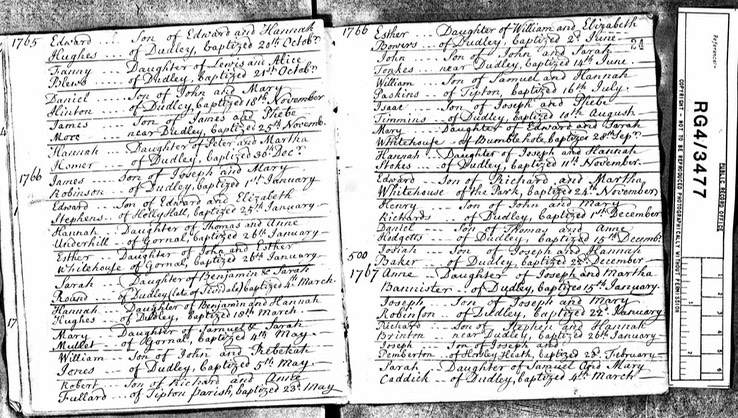 1765 Edward ... Son of Edward and Hannah
Hughes ... of Dudley, baptized 20th Octobr.
Fanny ... Daughter of Lewis and Alice
Blews ... of Dudley, baptized 21st Octobr.
Daniel ... Son of John and Mary
Hinton ... of Dudley, baptized 18th November
James ... Son of James and Phebe
More ... near Dudley, baptized 25th Novemb.
Hannah Daughter of Peter and Martha
Homer ... of Dudley, baptized 30th Decr.
1766 James ... Son of Joseph and Mary
Robinson ... of Dudley, baptized 1st January
Edward ... Son of Edward and Elizabeth
Stephens of Holly Hall, baptized 25th January
Hannah Daughter of Thomas and Anne
Underhill of Gornal, baptized 26th January
Esther Daughter of and Esther
Whitehouse of Gornal, baptized 26th January
Sarah Daughter of Benjamin & Sarah
Round of Dudley (late of Tividale) baptized 4th March
Hannah Daughter of Benjamin and Hannah
Hughes of Dudley, 10th March
Mary Daughter of Samuel & Sarah
Mullet of Gornal, baptized 4th May
William Son of John and Rebekah
Jones of Dudley, baptized 5th May
Robert Son of Richard and Anne
Fullard of Tipton Parish, baptized 23d May
17
1766 Esther ... Daughter of William and Elizabeth
Bowers ... of Dudley, baptized 2d June
24
John ... Son of John and Sarah
Tonkes ... near Dudley, baptized 14th June
William ... Son of Samuel and Hannah
Paskins of Tipton, baptized 16th July
Isaac ... Son of Joseph and Phebe
Timmins ... of Dudley, baptized 10th August
Mary Daughter of Edward and Sarah
Whitehouse of Bumblehole, baptized 28th Sepr.
Hannah Daughter of Joseph and Hannah
Stokes ... of Dudley, baptized 11th November
Edward ... Son of Richard and Martha
Whitehouse of the Park, baptized 24th November
Henry ... Son of John and Mary
Richards ... of Dudley, baptized 1st December
Daniel ... Son of Thomas and Anne
Hodgetts ... of Dudley, baptized 15th Decembr.
Josiah Son of Joseph and Hannah
500 Baker ... of Dudley, baptized December
1767 Anne Daughter of Joseph and Martha
Bannister of Dudley, baptized 15th January
Joseph Son of Joseph and Mary
Robinson of Dudley, baptized 22d January
Richard Son of Stephen and Hannah
Brinton near Dudley, baptized 26th January
Joseph Son of Joseph and
Pemberton of Heath, baptized 28th February
Sarah Daughter of Samuel and Mary
Caddick of Dudley, baptized 4th March
Reference:-
PUBLIC RECORD OFFICE
RG4/3477
COPYRIGHT - NOT TO BE REPRODUCED PHOTOGRAPHICALLY WITHOUT PERMISSION